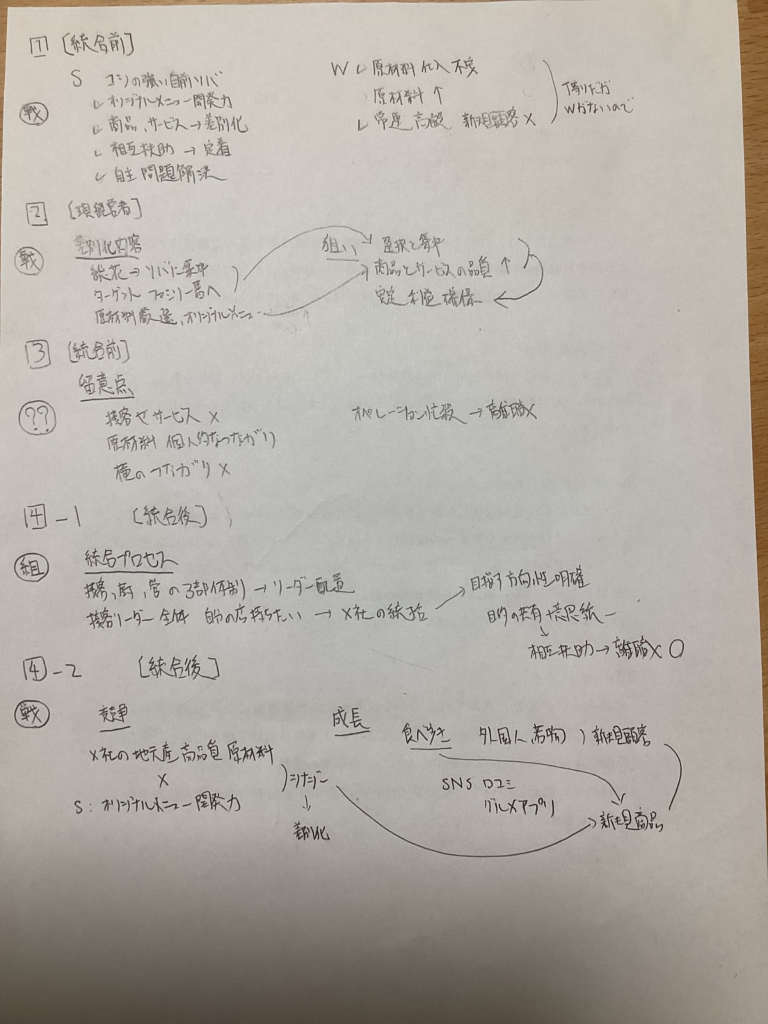 1 [統合前]
S コシの強い自前ソバ
戦
レ オリジナルメニュー開発力
レ 商品、サービス→差別化
レ 相互扶助 → 定着
レ 自主問題解決
W レ 原材料 仕入 不安
原材料↑
レ 常連 高齢 新規顧客×
Wがないので
2 [現経営者]
戦
差別化内容
→ソバに集中
ターゲット ファミリー層へ
原材料厳選、オリジナルメニュー
狙い
選択と集中
商品とサービスの品質↑
安定 利益 確保
3 [統合前]
留意点
??
接客 サービス ×
原材料 個人的なつながり
横のつながり ×
オペレーション 忙殺 → 離職×
4-1 [統合後]
組
統合プロセス
接客、厨、管の3部体制 → リーダー配置
接客リーダー 全体 自分の店持ちたい → X社の統括
目指す方向性 明確
目的の共有・意思統一
相互扶助→離職× ○
4-2 [統合後]
戦
競争
X社の地元産 高品質 原材料
×
S:オリジナルメニュー開発力
シナジー
↓
差別化
成長
食べ歩き 外国人(若物) 新規顧客
SNS 口コミ
グルメアプリ
新規商品